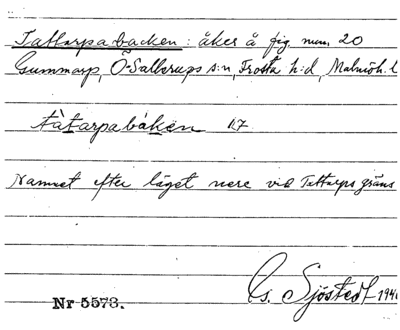 Tattarpabacken: åker å fig. num 20
Gummarp, Ö-Sallerups s:n, Frosta h:d, Malmöh. l
tàtarpabáken 1,7
Namnet efter läget nere vid Tattarps gräns
Nr 5573.
Gs. Sjöstedt 194